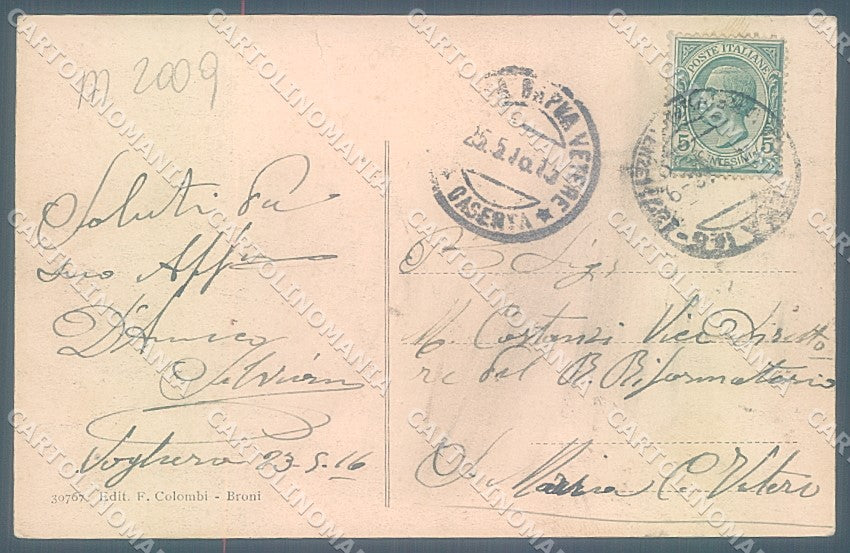 M 2009
POSTE ITALIANE
5 5
CENTESIMI
MARIA CAPUA VETERE
25.5.16.15
* CASERTA *
Saluti dal
suo Aff
D'Amico
Silvio
Voghera 23-5-16
30767 Edit. F. Colombi - Broni
Sig.
M. Costanzi Vice Diretto
re del R. Riformatorio
S. Maria C. Vetere
CARTOLINOMANIA